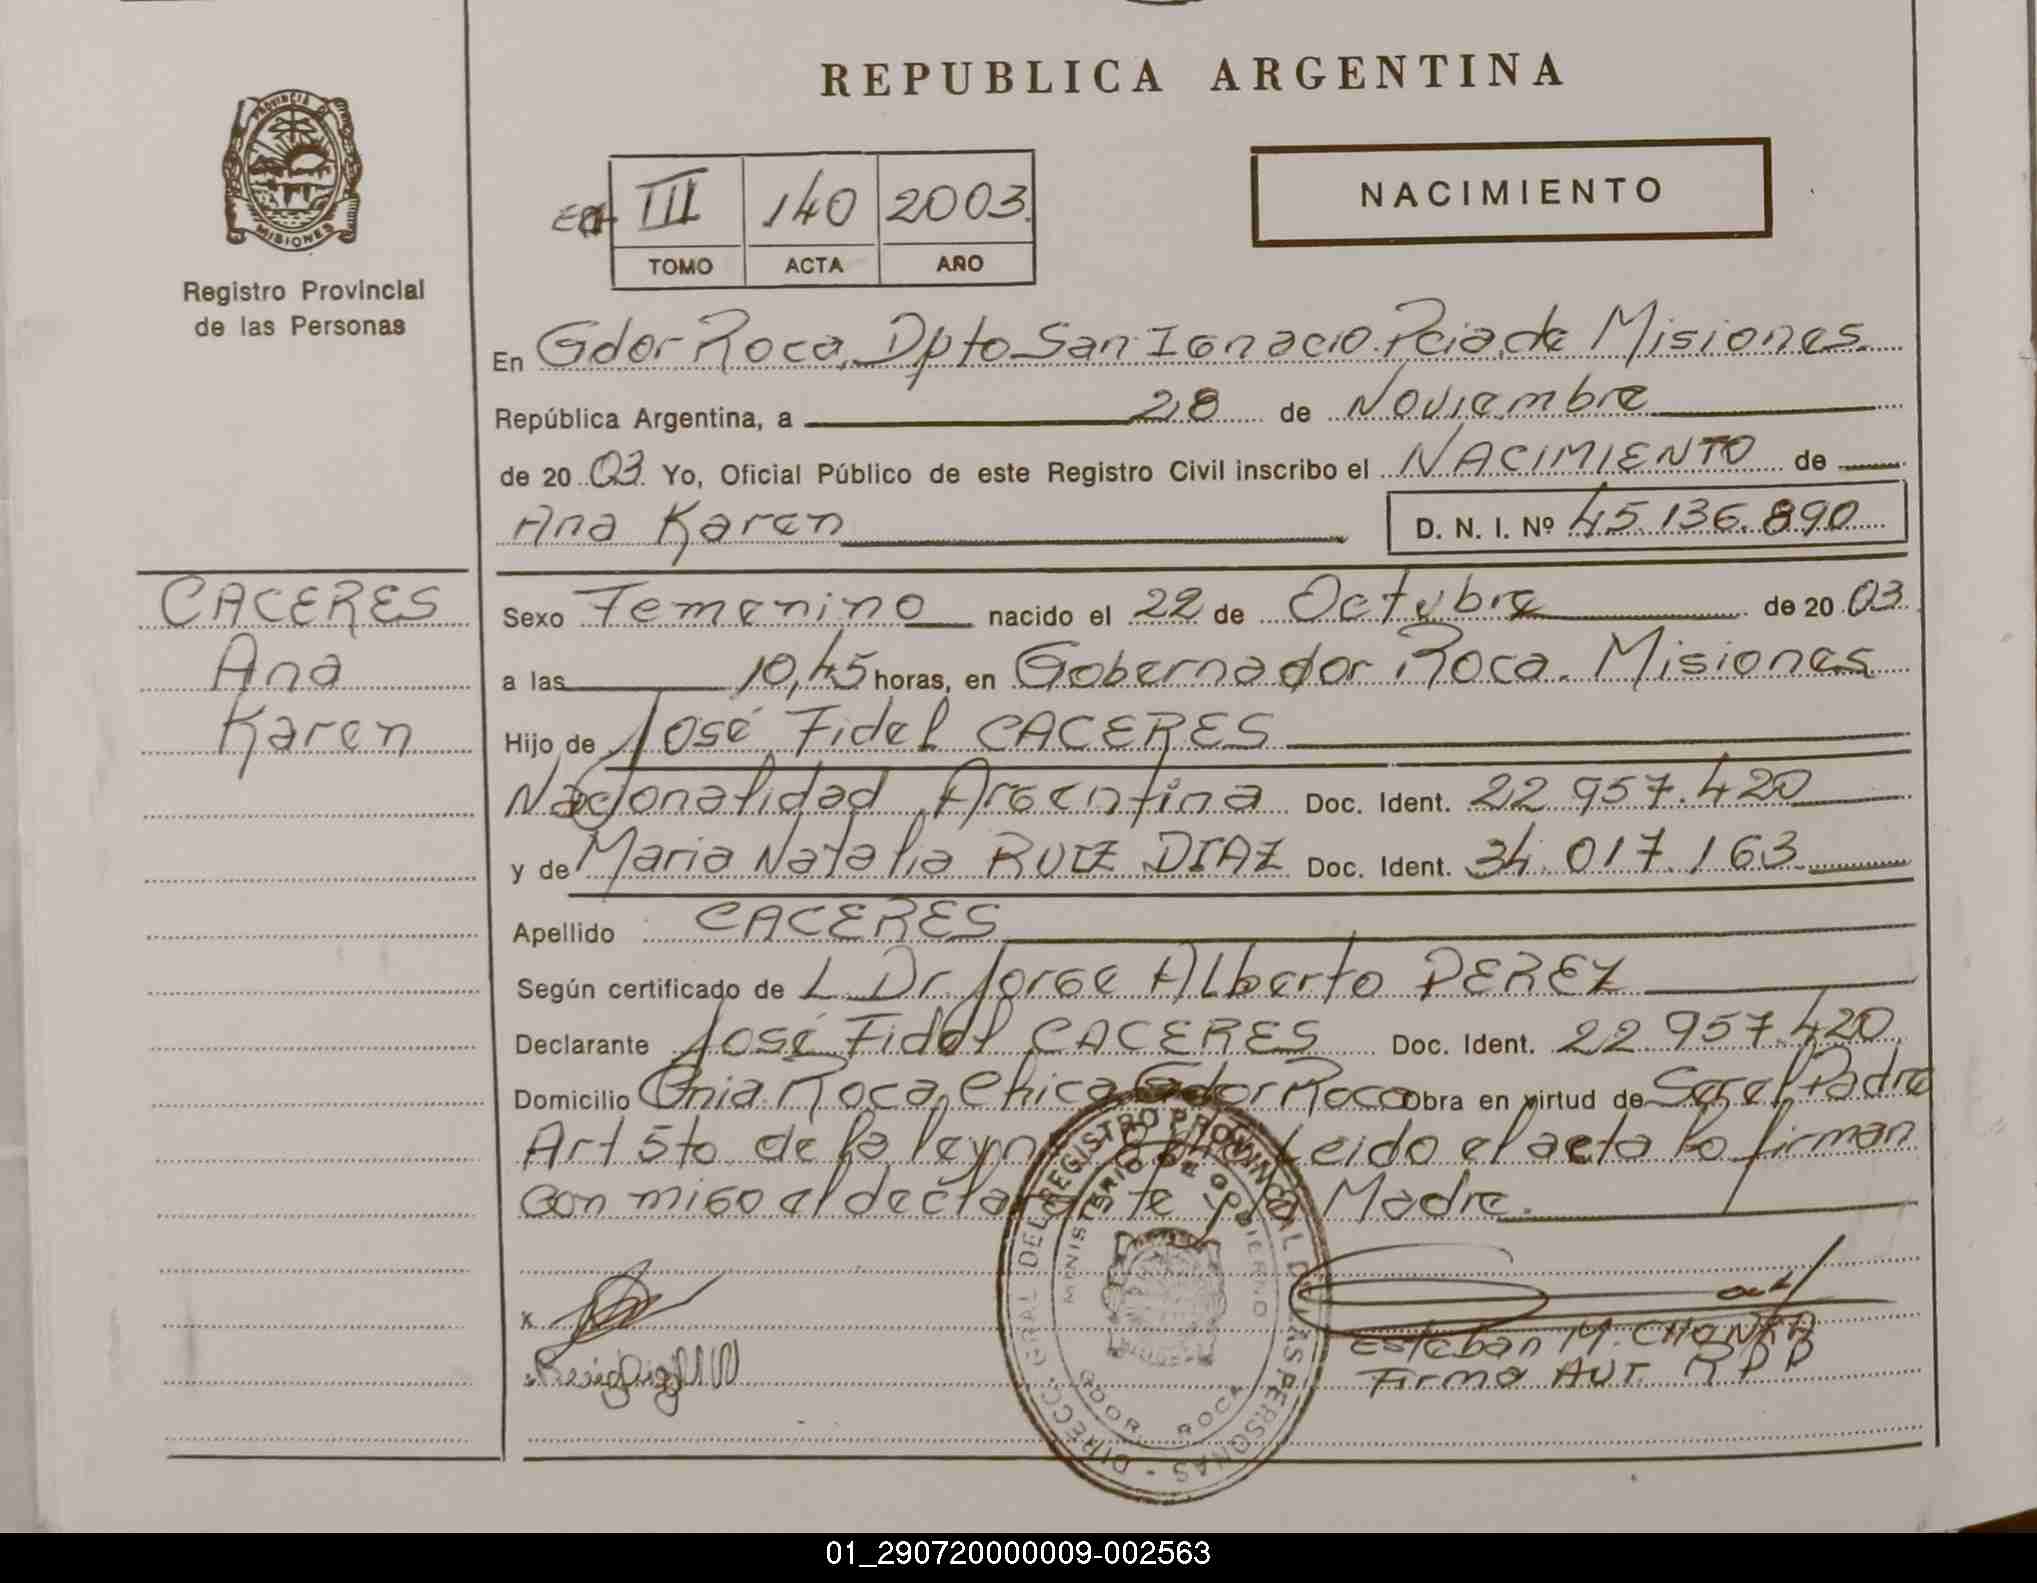 REPUBLICA ARGENTINA
PROVINCIA DE MISIONES
Registro Provincial
de las Personas
III 140 2003
TOMO ACTA AÑO
NACIMIENTO
En Gdor Roca, Dpto San Ignacio. Pcia, de Misiones
República Argentina, a 28 de Noviembre
de 20 03 Yo, Oficial Público de este Registro Civil inscribo el NACIMIENTO de
Ana Karen D. N. I. Nº 45.136.890
CACERES
Ana
Karen
Sexo Femenino nacido el 22 de Octubre de 20 03
a las 10,45 horas, en Gobernador Roca. Misiones
Hijo de José Fidel CACERES
Nacionalidad Argentina Doc. Ident. 22.957.420
y de Maria Natalia RUIZ DIAZ Doc. Ident. 34.017.163
Apellido CACERES
Según certificado de L Dr Jorge Alberto PEREZ
Declarante José Fidel CACERES Doc. Ident. 22.957.420
Domicilio Cnia Roca Chica Gdor Roca Obra en virtud de Ser el Padre
Art 5to de la ley Leido el acta lo firman
con migo el declarante y la Madre.
DIRECC. GRAL DEL REGISTRO PROVINCIAL DE LAS PERSONAS
MINISTERIO DE GOBIERNO
GDOR ROCA
x
Esteban M.
Firma AUT. RPP
01_290720000009-002563